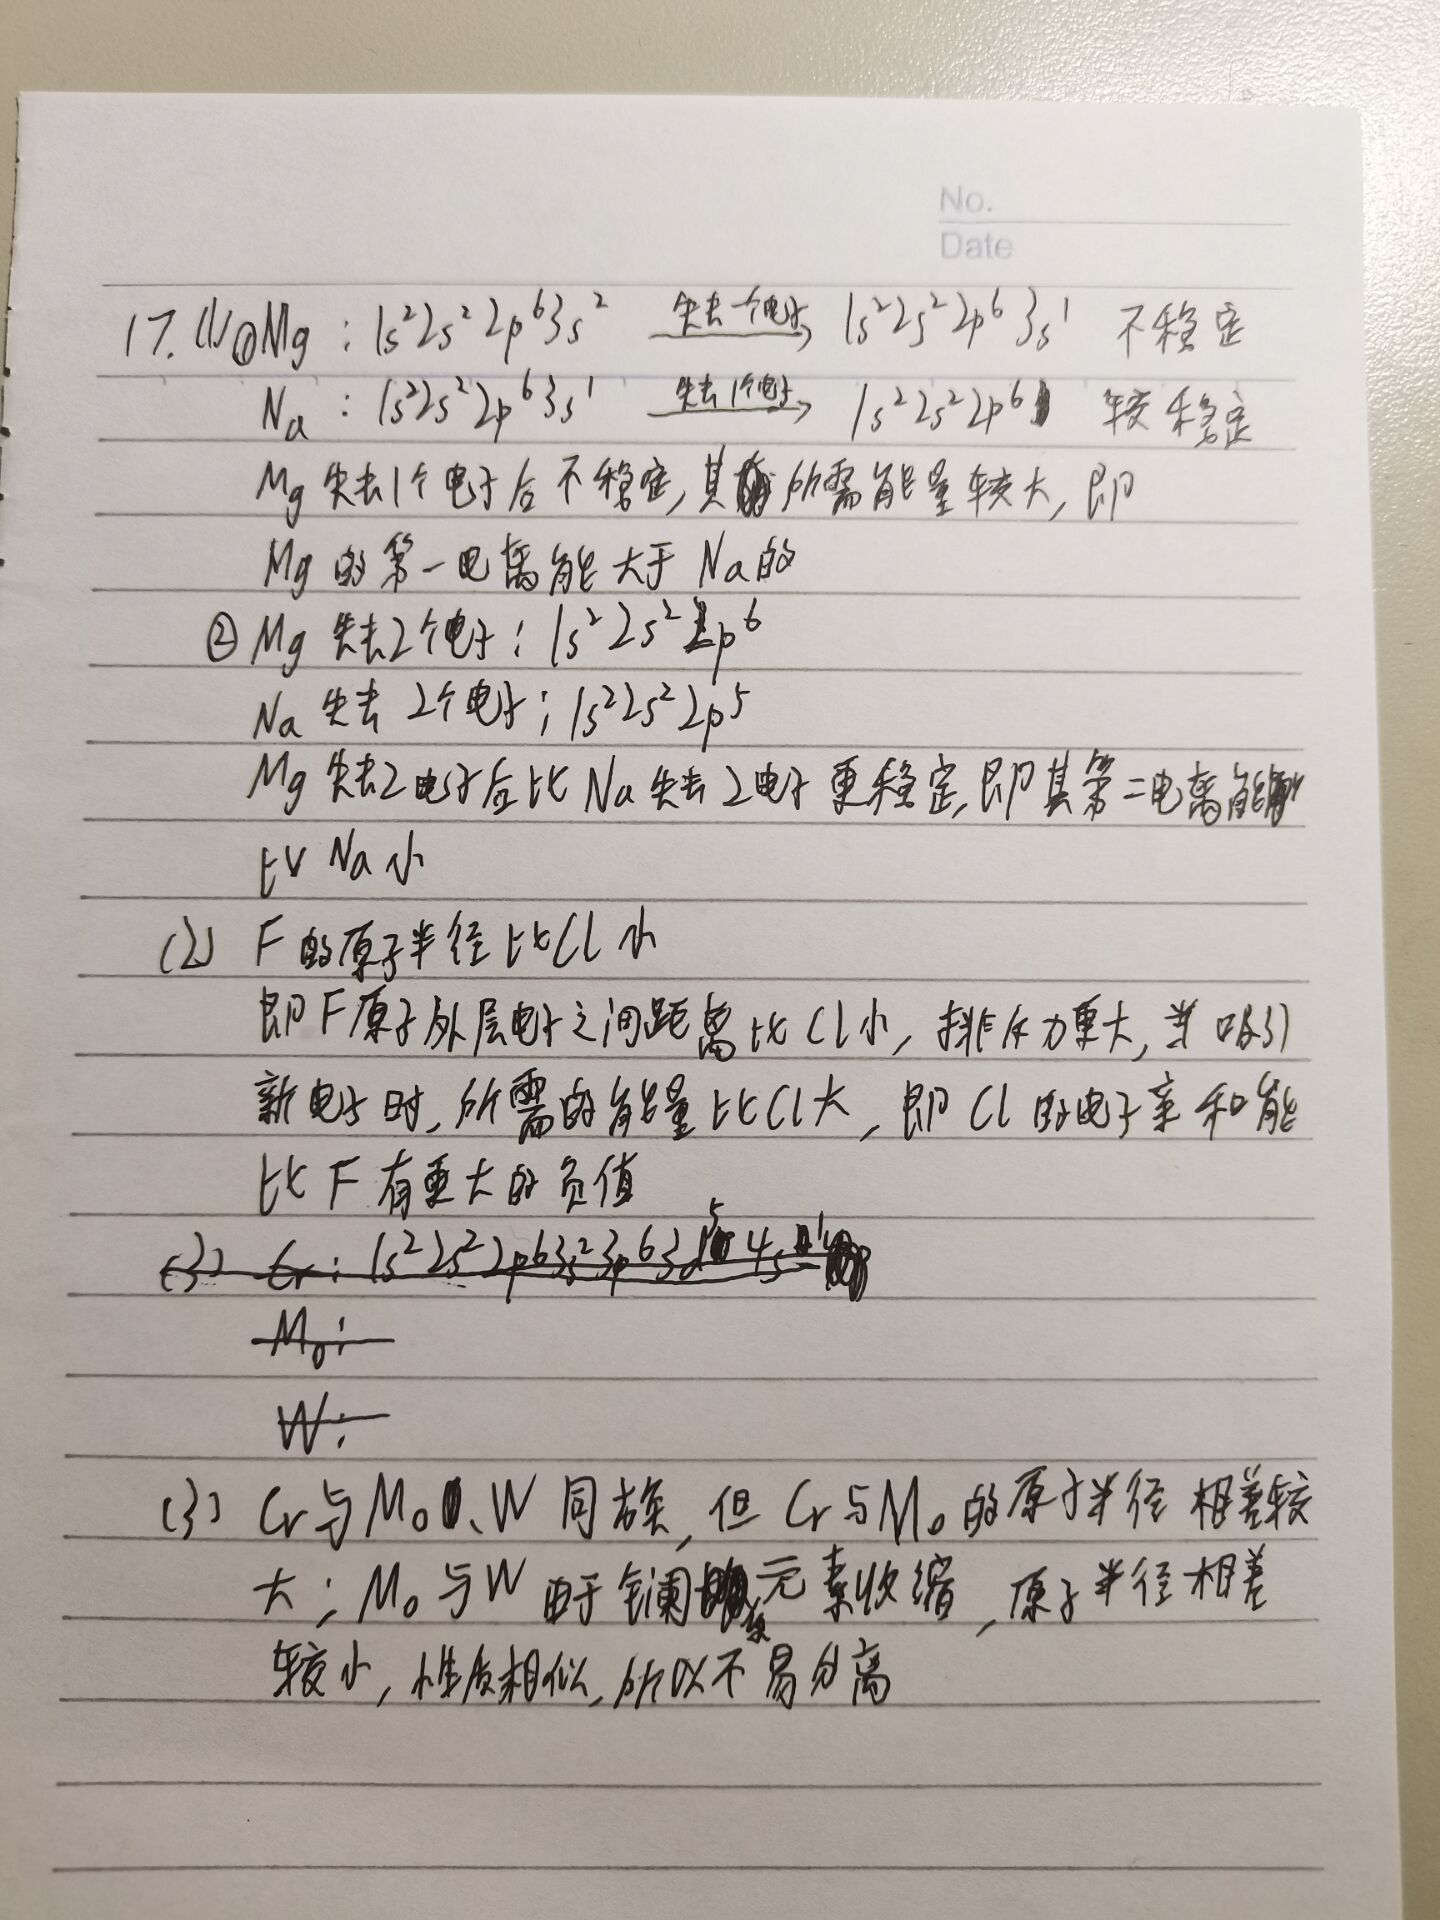 No.
Date
17. (1)①Mg：1s²2s²2p⁶3s² 失去一个电子→ 1s²2s²2p⁶3s¹ 不稳定
Na：1s²2s²2p⁶3s¹ 失去1个电子→ 1s²2s²2p⁶ 较稳定
Mg失去1个电子后不稳定,其所需能量较大,即
Mg的第一电离能大于Na的
②Mg失去2个电子：1s²2s²2p⁶
Na失去2个电子；1s²2s²2p⁵
Mg失去2电子后比Na失去2电子更稳定,即其第二电离能
比Na小
(2) F的原子半径比Cl小
即F原子外层电子之间距离比Cl小,排斥力更大,当吸引
新电子时,所需的能量比Cl大,即Cl的电子亲和能
比F有更大的负值
(3) Cr：1s²2s²2p⁶3s²3p⁶3d⁵4s¹
Mo：
W：
(3) Cr与Mo、W同族,但Cr与Mo的原子半径相差较
大；Mo与W由于镧系元素收缩,原子半径相差
较小,性质相似,所以不易分离